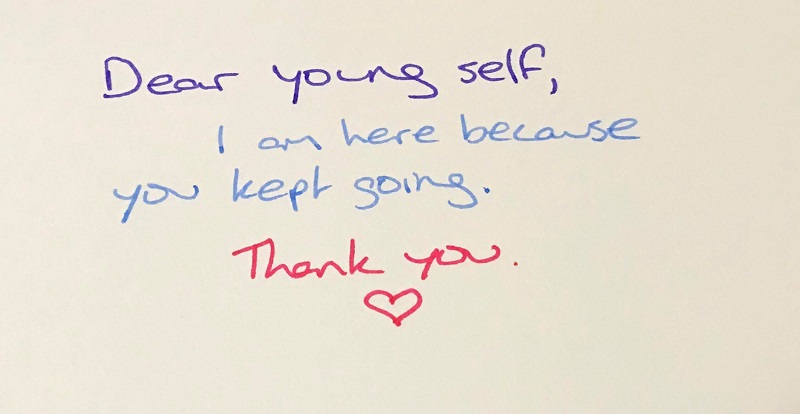 Dear young self,
I am here because
you kept going.
Thank you.